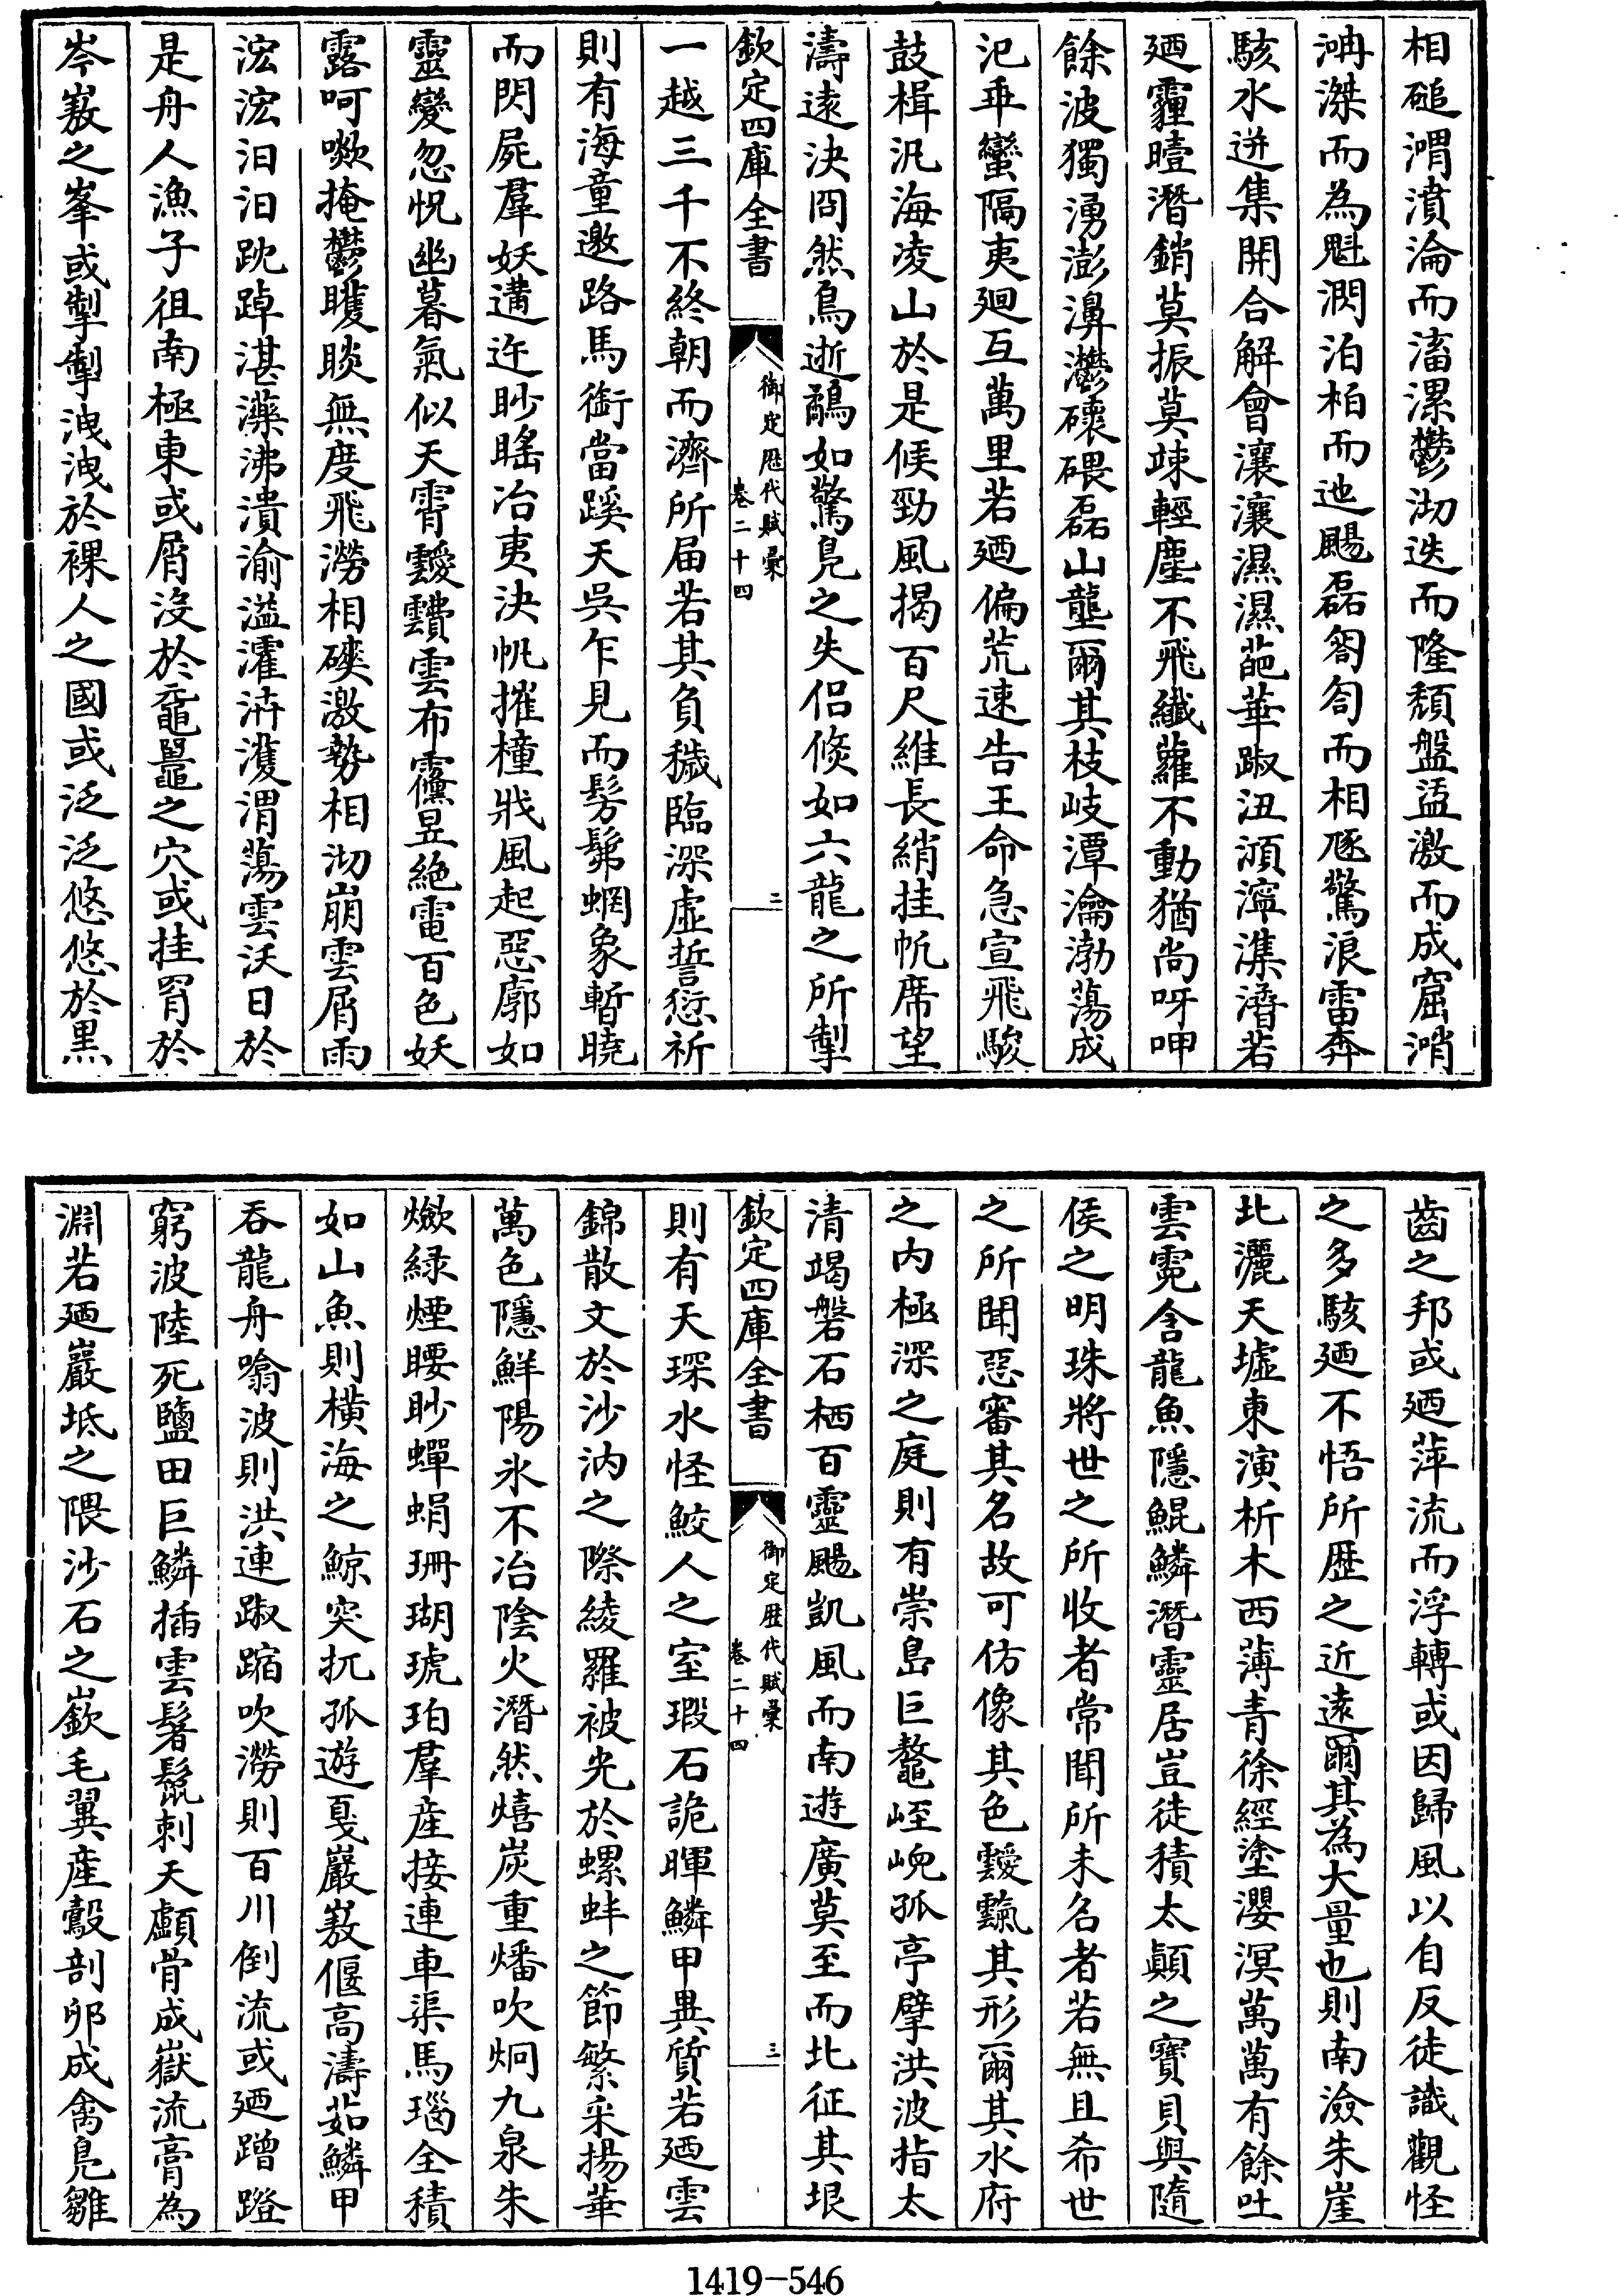 相磓渭濆淪而滀漯鬱沏迭而隆頽盤盓激而成窟㴥
㴸滐而為魁㵎泊柏而迆颺磊匒匌而相豗驚浪雷奔
駭水迸集開合解會瀼瀼濕濕葩華踧沑澒濘潗㵫若
廼霾曀潛銷莫振莫竦輕塵不飛纖蘿不動猶尚呀呷
餘波獨湧澎濞灪磙碨磊山壟爾其枝岐潭瀹渤蕩成
汜乖蠻隔夷廻互萬里若廼偏荒速告王命急宣飛駿
鼓楫汎海淩山於是候勁風揭百尺維長綃挂帆席望
濤遠決冏然鳥逝鷸如驚鳬之失侣倐如六龍之所掣
欽定四庫全書 御定歴代賦彙 卷二十四 三
一越三千不終朝而濟所届若其負穢臨深虛誓愆祈
則有海童邀路馬銜當蹊天吳乍見而髣髴蝄象暫曉
而閃屍羣妖遘迕眇䁘冶夷決帆摧橦戕風起惡廓如
靈變忽怳幽暮氣似天霄靉靅雲布霵昱絶電百色妖
露呵㗵掩鬱矆睒無度飛澇相磢激勢相沏崩雲屑雨
浤浤汨汨䟢踔湛濼沸潰渝溢瀖泋濩渭蕩雲沃日於
是舟人漁子徂南極東或屑沒於黿鼉之穴或挂罥於
岑㠂之峯或掣掣洩洩於裸人之國或泛泛悠悠於黒
齒之邦或廼萍流而浮轉或因歸風以自反徒識觀怪
之多駭廼不悟所歴之近遠爾其為大量也則南澰朱崖
北灑天墟東演析木西薄青徐經塗瀴溟萬萬有餘吐
雲霓含龍魚隱鯤鱗潛靈居豈徒積太顛之寶貝與隨
侯之明珠將世之所收者常聞所未名者若無且希世
之所聞惡審其名故可仿像其色靉霼其形爾其水府
之内極深之庭則有崇島巨鼇峌㟫孤亭擘洪波指太
清竭磐石栖百靈颺凱風而南遊廣莫至而北征其垠
欽定四庫全書 御定歴代賦彙 卷二十四 三
則有天琛水怪鮫人之室瑕石詭暉鱗甲異質若廼雲
錦散文於沙汭之際綾羅被光於螺蚌之節繁采揚華
萬色隱鮮陽氷不冶陰火潛然熺炭重燔吹烱九泉朱
㷿緑煙腰眇蟬蜎珊瑚琥珀羣産接連車渠馬瑙全積
如山魚則横海之鯨突扤孤遊戛巖㠂偃高濤茹鱗甲
吞龍舟噏波則洪連踧蹜吹澇則百川倒流或廼蹭蹬
窮波陸死鹽田巨鱗插雲鬐鬛刺天顱骨成嶽流膏為
淵若廼巖坻之隈沙石之嶔毛翼産鷇剖卵成禽鳬雛
1419-546